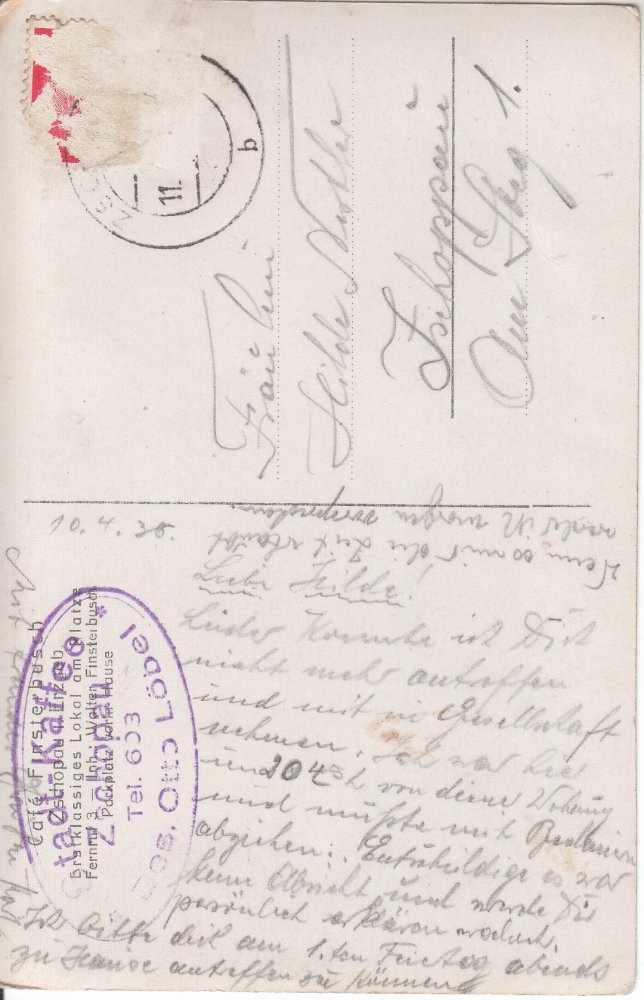 10.4.36.
Liebe Hilde!
Leider konnte ich Dich
nicht mehr antreffen
und mit in Gesellschaft
nehmen. Ich war hier
und von deine Wohnung
und mußte mit Bedauern
abziehen. Entschuldige es war
keine Absicht und werde Dir
persönlich erklären
Ich bitte dich am 1.ten Feiertag abends
zu Hause antreffen zu können
Wenn mir die Zeit erlaubt
ich morgen
Mit
Fräulein
Hilde
Zschopau
Am 1.
11.
b
Café Finsterbusch
Zschopau i. Erzgeb
Erstklassiges Lokal am Platze
Fernruf 3 Inh.: Walter Finsterbusch
Parkplatz beim Hause
Stadt-Kaffee
Zschopau
Tel. 603
Bes. Otto Löbel